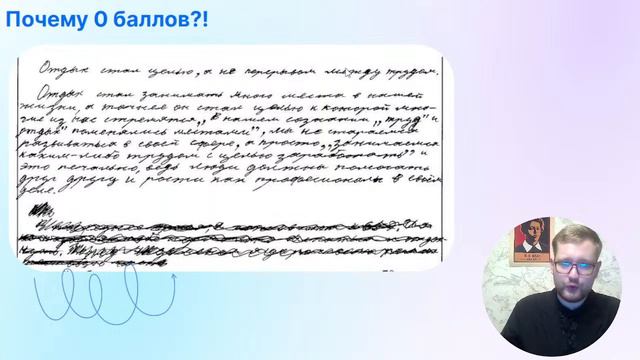 Почему 0 баллов?!
Отдых стал целью, а не перерывом между трудом.
Отдых стал занимать много места в нашей
жизни, а точнее он стал целью к которой мно-
гие из нас стремятся, "В нашем сознании "труд" и
отдых" поменялись местами", мы не стараемся
развиваться в своей сфере, а просто "занимаемся
каким-либо трудом с целью заработать" и
это печально, ведь люди должны помогать
друг другу и расти как профессионалы в своём
деле.